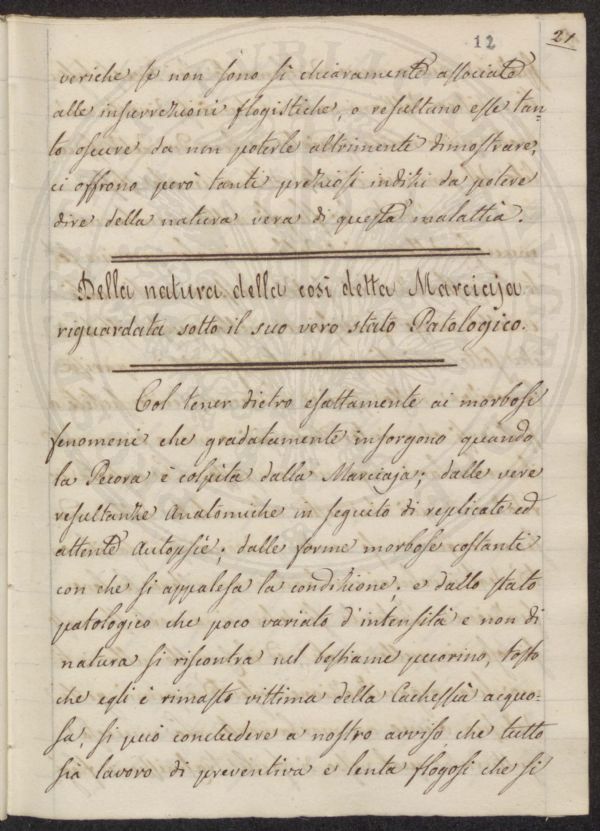 12
21
veriche se non sono si chiaramente associate
alle insurrezioni flogistiche, o resultano esse tan=
to oscure da non poterle altrimenti dimostrare,
ci offrono però tanti preziosi indizi da potere
dire della natura vera di questa malattia.
Della natura della così detta Marciaja
riguardata sotto il suo vero stato Patologico.
Col tener dietro esattamente ai morbosi
fenomeni che gradatamente insorgono quando
la Pecora è colpita dalla Marciaja; dalle vere
resultanze Anatomiche in seguito di replicate ed
attente Autopsie; dalle forme morbose costanti
con che si appalesa la condizione, e dallo stato
patologico che poco variato d'intensità e non di
natura si riscontra nel bestiame pecorino, tosto
che egli è rimasto vittima della Cachessia acquo=
sa, si può concludere a nostro avviso che tutto
sia lavoro di preventiva e lenta flogosi che si